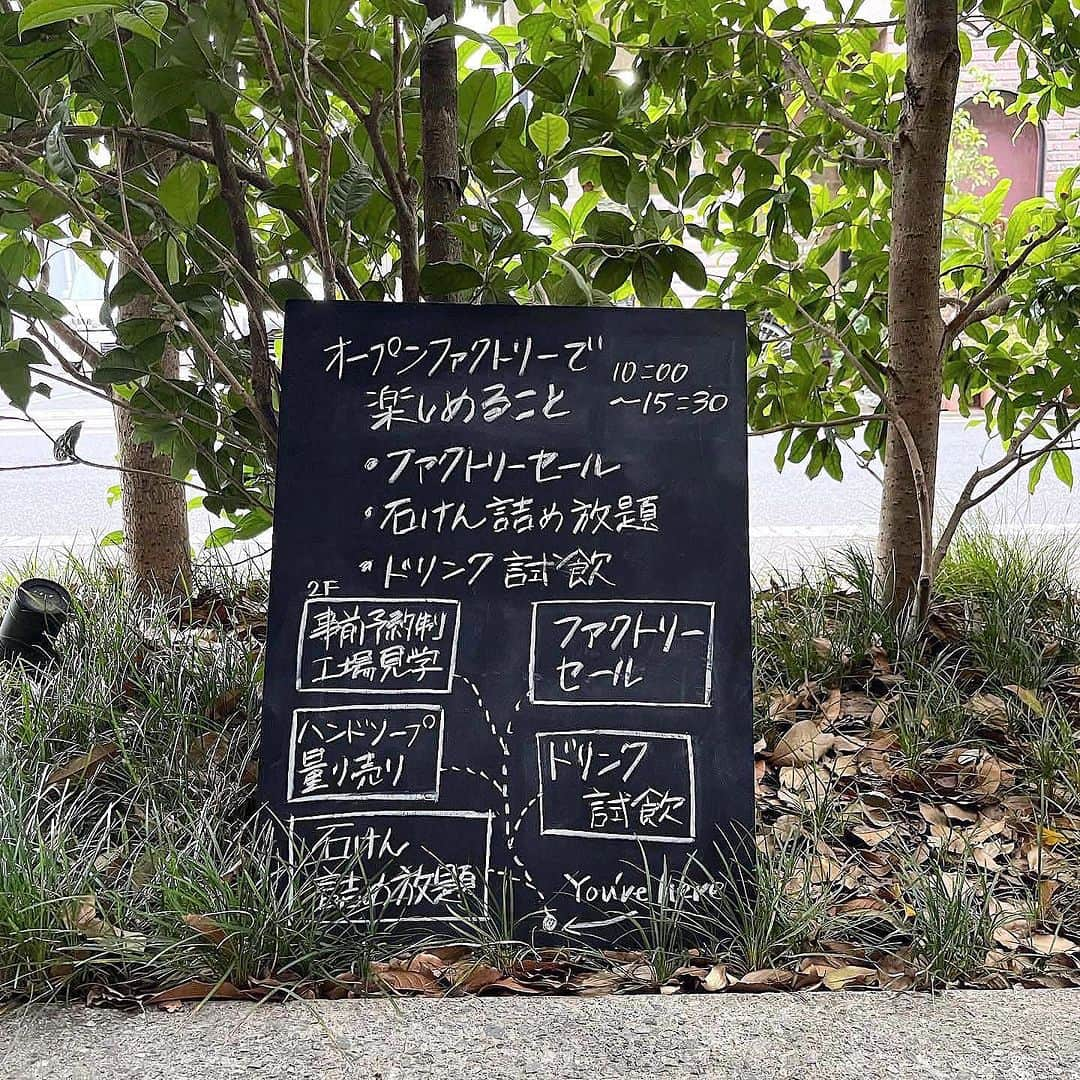 オープンファクトリーで
楽しめること
10:00
～15:30
・ファクトリーセール
・石けん詰め放題
・ドリンク試飲
2F
事前予約制
工場見学
ファクトリー
セール
ハンドソープ
量り売り
ドリンク
試飲
石けん
詰め放題
You're here